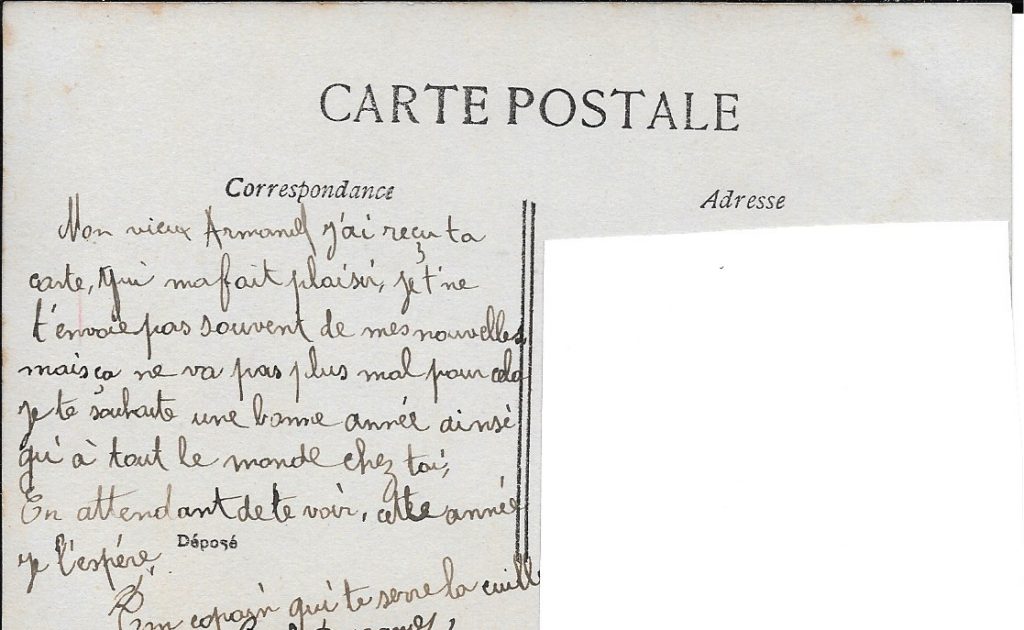 CARTE POSTALE
Correspondance
Mon vieux Armand j'ai reçu ta
carte, qui ma fait plaisir, je t'ne
t'envoie pas souvent de mes nouvelles
mais ça ne va pas plus mal pour cela
je te souhaite une bonne année ainsi
qu'à tout le monde chez toi,
En attendant de te voir, cette année
je l'espère,
Déposé
copain qui te serre la cuill
Adresse